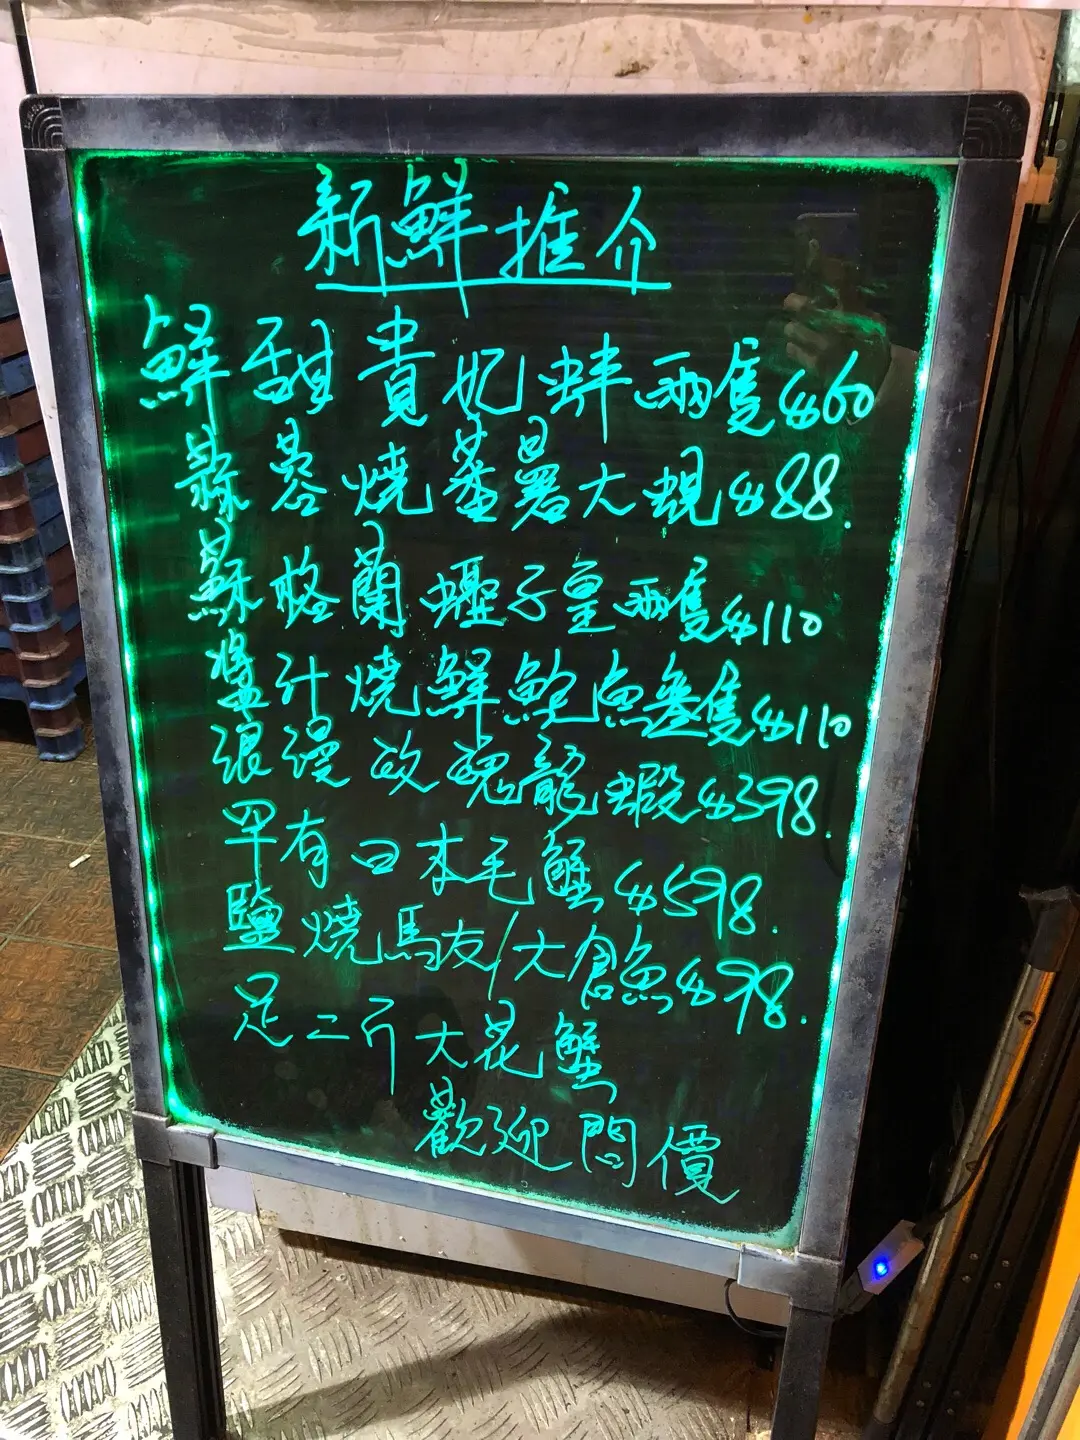 新鮮推介
鮮甜貴妃蚌兩隻$60
蒜蓉燒蕃薯大蜆$88.
蘇格蘭蟶子皇兩隻$110
漿汁燒鮮鮑魚叁隻$110
浪漫玫瑰龍蝦$398.
罕有日本毛蟹$598.
鹽燒馬友/大倉魚$98.
足二斤大花蟹
歡迎問價